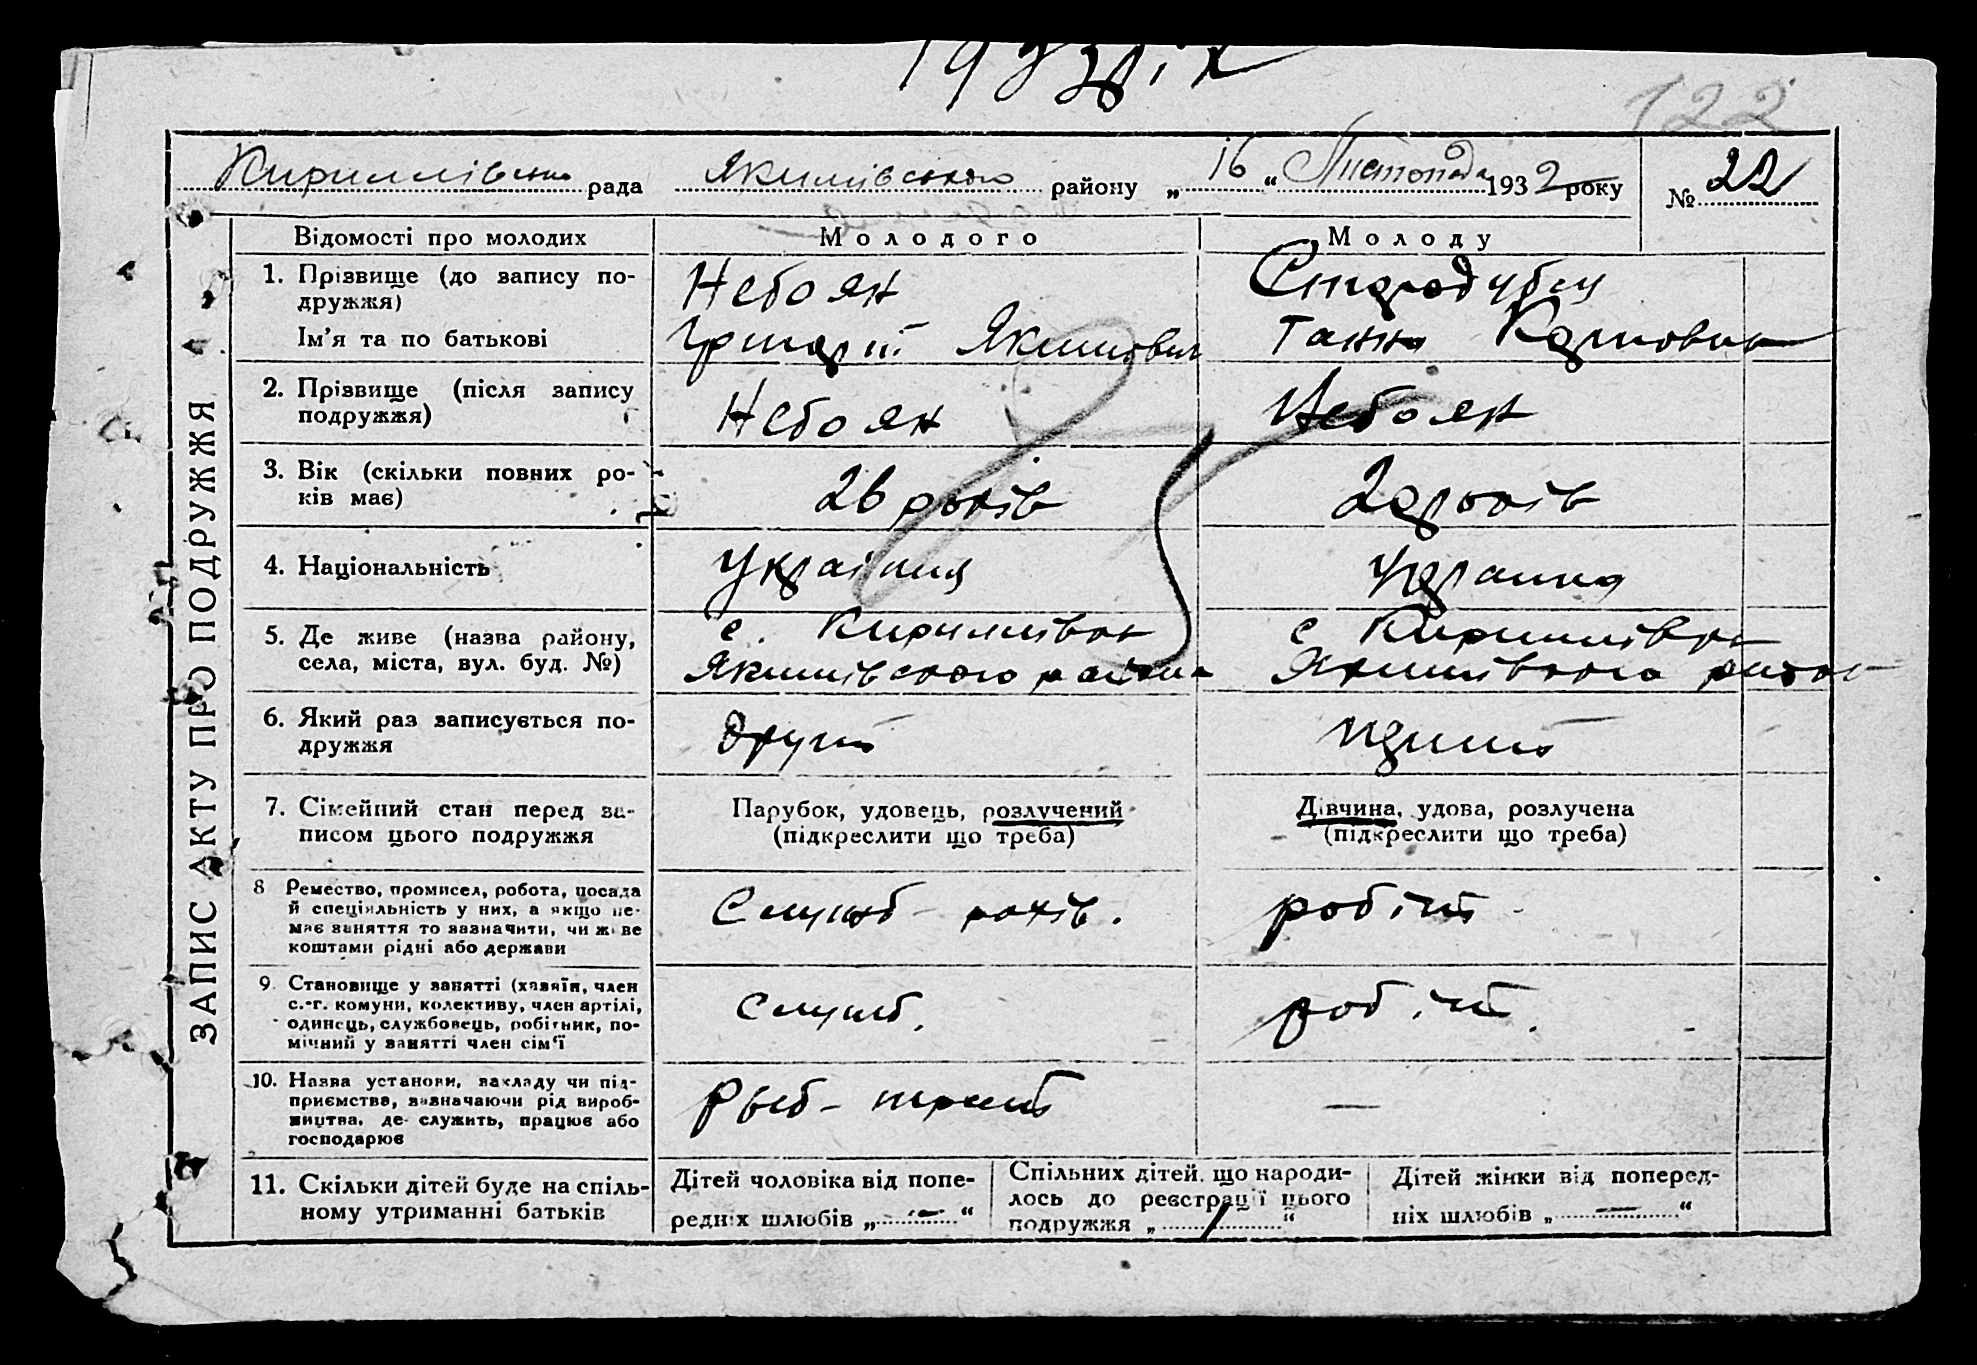 122
Кириллівська рада Якимівського району „ 16 “ Листопада 1932 року № 22
ЗАПИС АКТУ ПРО ПОДРУЖЖЯ
Відомості про молодих Молодого Молоду
1. Прізвище (до запису по-
дружжя) Небоян Стародубец
Ім’я та по батькові Григорій Якимович Ганна Карповна
2. Прізвище (після запису
подружжя) Небоян Небоян
3. Вік (скільки повних ро-
ків має) 26 років років
4. Національність Україниц
5. Де живе (назва району,
села, міста, вул. буд. №)
с. Кириллівка с Кириллівка
Якимівського району Якимівського району
6. Який раз записується по-
дружжя другий
7. Сімейний стан перед за-
писом цього подружжя
Парубок, удовець, розлучений
(підкреслити що треба)
Дівчина, удова, розлучена
(підкреслити що треба)
8 Ремество, промисел, робота, посада
й спеціяльність у них, а якщо не-
має заняття то зазначити, чи живе
коштами рідні або держави
Служб робіт
9. Становище у занятті (хазяїн, член
с.-г. комуни, колективу, член артілі,
одинець, службовець, робітник, по-
мічний у занятті член сім‘ї
служб. робіт.
10. Назва установи, закладу чи під-
приємства, зазначаючи рід вироб-
ництва, де служить, працює або
господарює
Рыб- трест —
11. Скільки дітей буде на спіль-
ному утриманні батьків
Дітей чоловіка від попе-
редніх шлюбів „ — “
Спільних дітей, що народи-
лось до реєстрації цього
подружжя „ 1 “
Дітей жінки від поперед-
ніх шлюбів „ — “